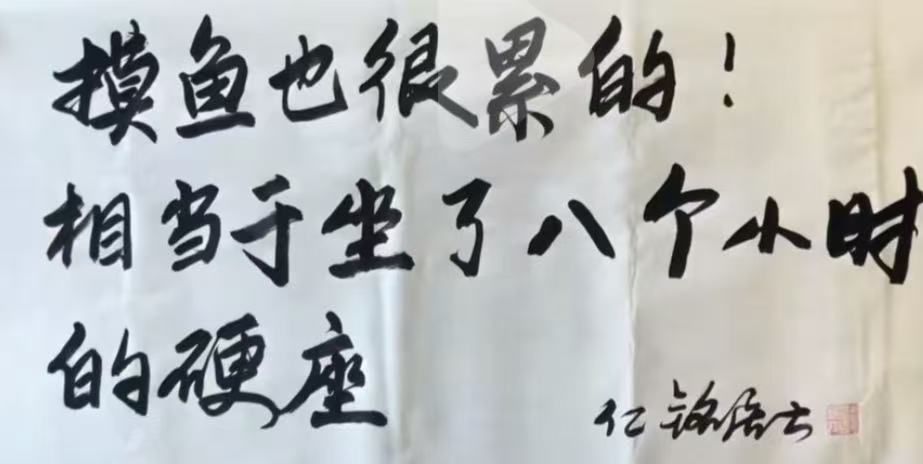 摸鱼也很累的！
相当于坐了八个小时
的硬座
仁铭居士